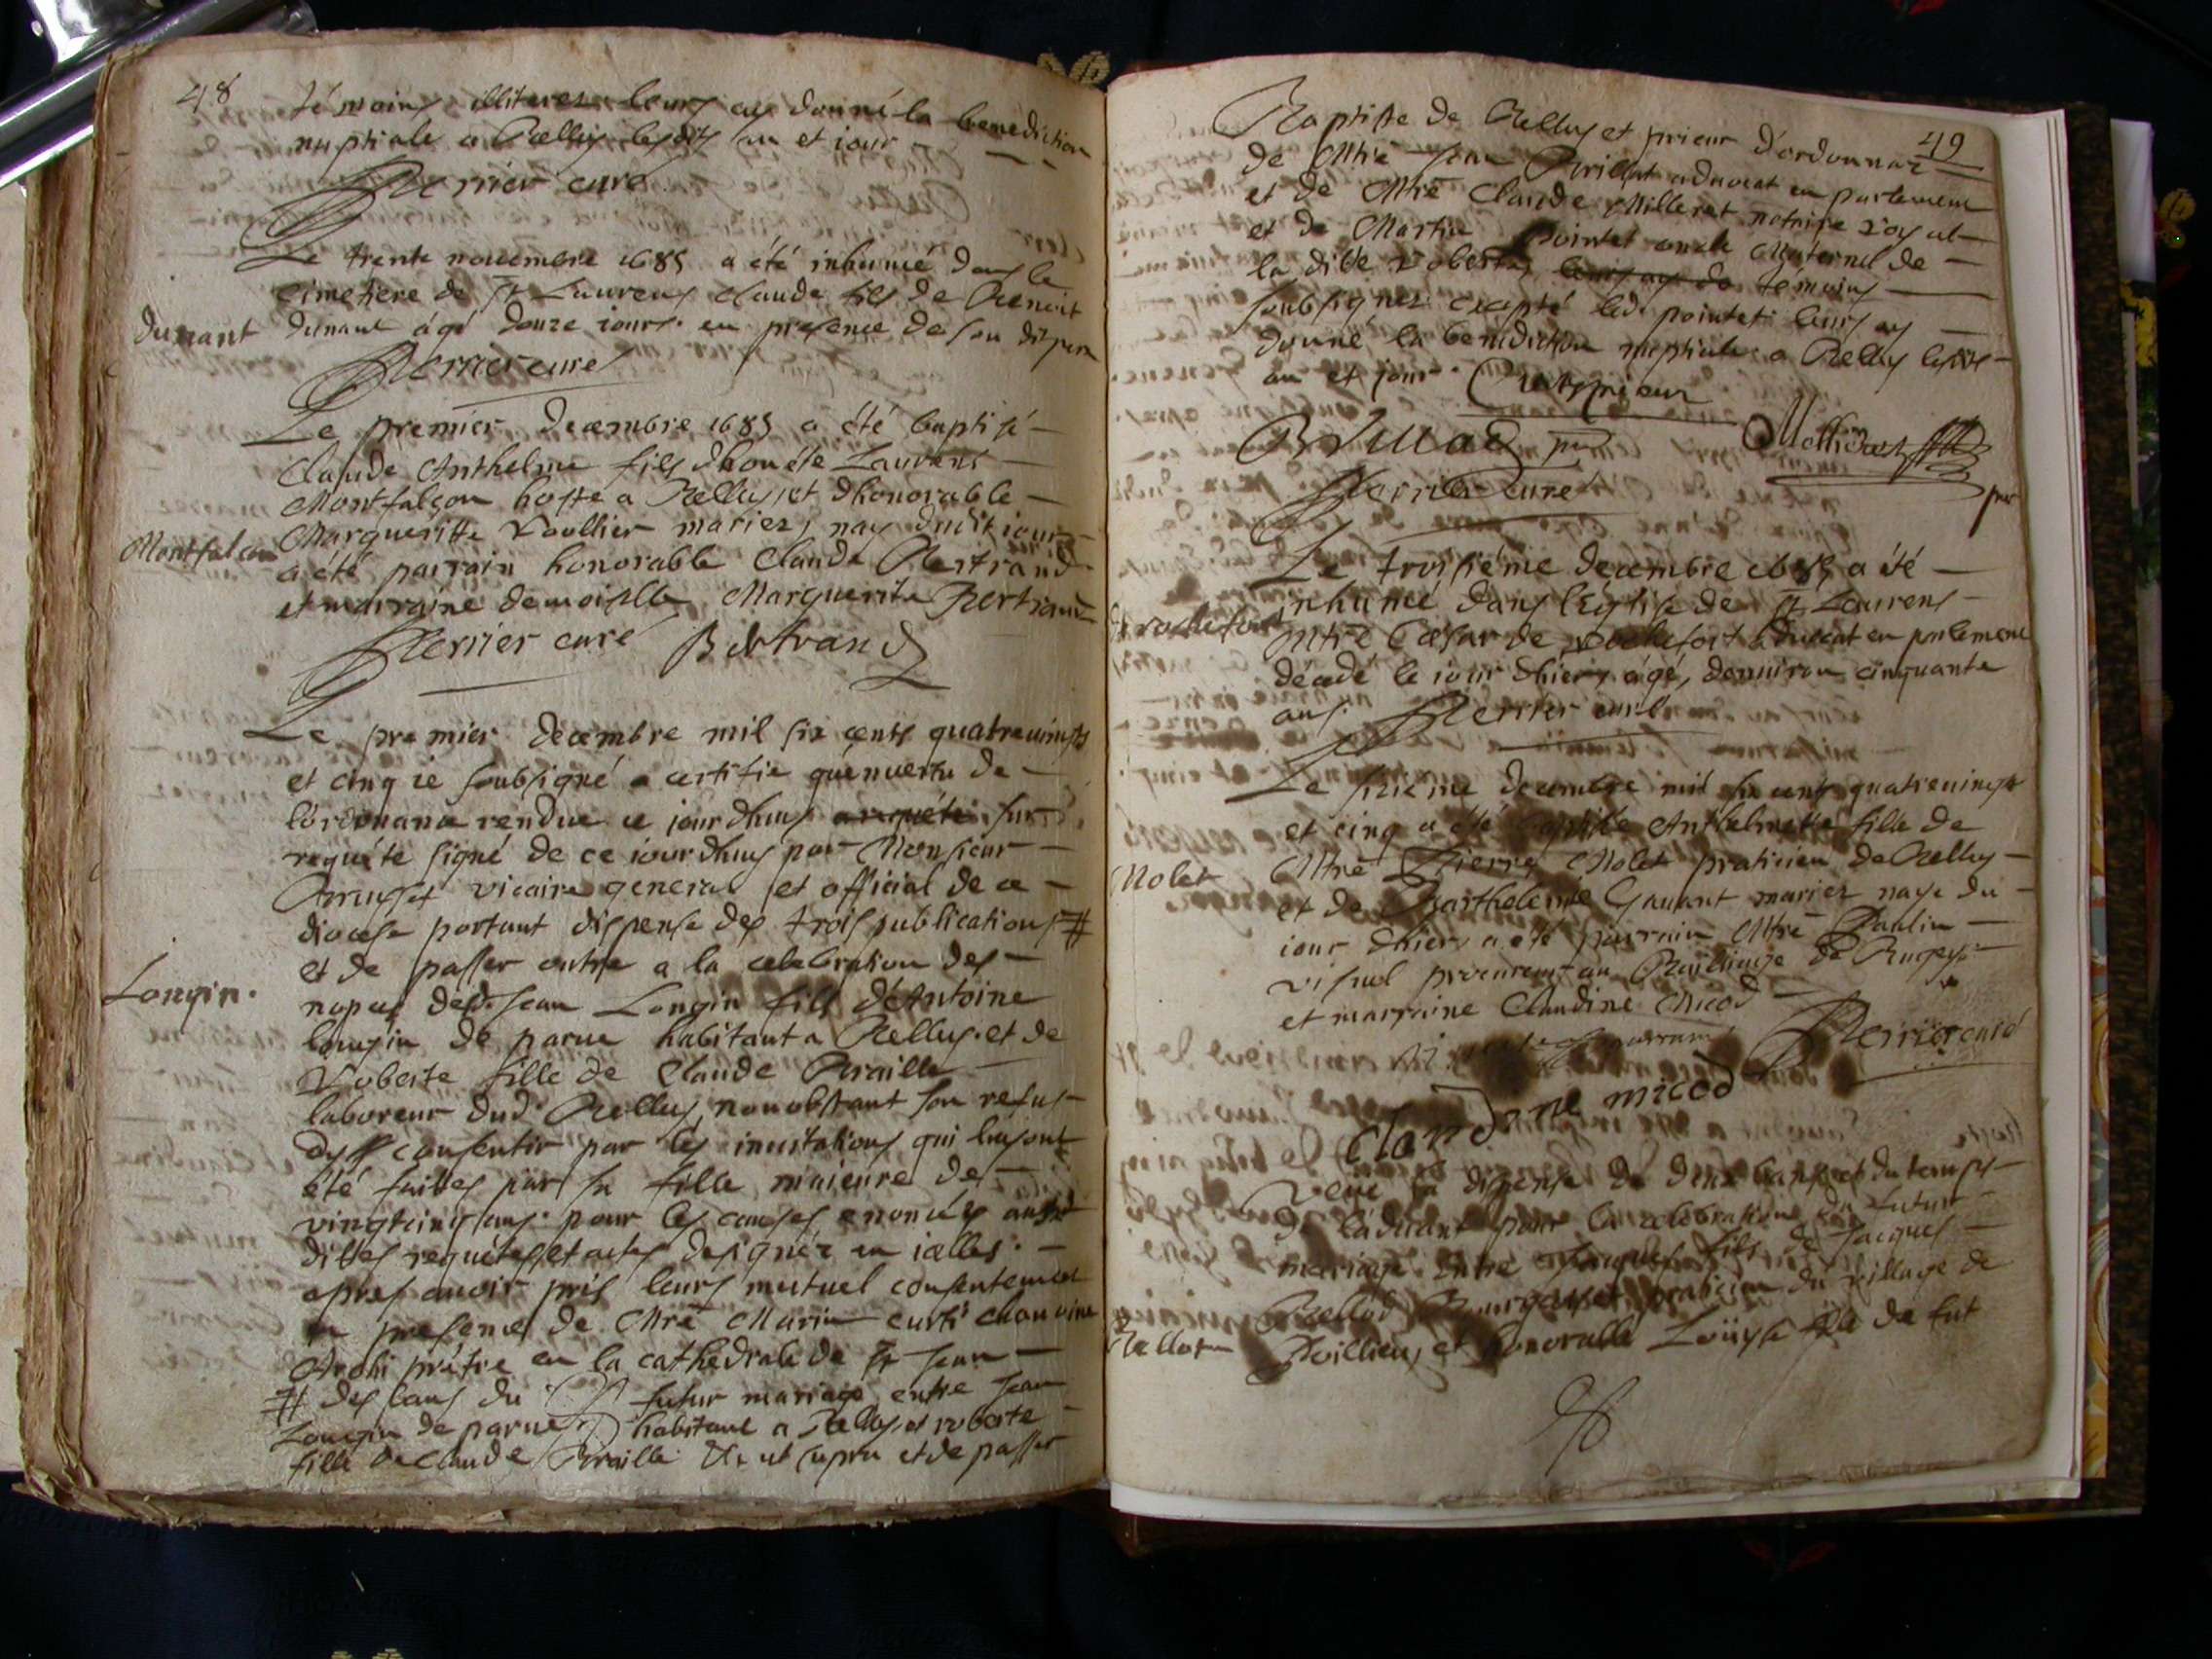 48
témoins illiterez leurs ay donné la benediction
nuptiale a Belley lesdits an et iour
Perrier curé
Le trente nouembre 1685 a été inhumé dans le
cimetiere de St Laurens claude fils de Benoit
dunant
dunant âgé douze iours en presence de son dit pere
Perrier curé
Le premier decembre 1685 a été baptisé
Claude Anthelme fils dhonéte Laurens
Montfalcon hoste a Belley et dhonorable
Margueritte Voullier mariez, nay dudit iour
Montfalcon
a été parrain honorable Claude Bertrand
et marraine demoiselle Marguerite Bertrand
Perrier curé Bertrand
Le premier decembre mil six cents quatreuingts
et cinq ie soubsigné a certifie quenuertu de
l'ordonance rendue ce iourdhuy a requéte sur
requéte signé de ce iourdhuy par Monsieur
vicaire general et official de ce
diocese portant dispense des trois publications #
et de passer outre a la celebration des
Longin.
nopces desd. Jean Longin fils d'Antoine
longin de parue habitant a Belley et de
Roberte fille de Claude Braille
laboreur dud. Belley, nonobstant son refus
dy consentir par les inuitations qui luy ont
été faittes par sa fille maieure de
vingtcinq ans pour les causes enoncées aux
dittes requétes et actes designéz en icelles.
apres auoir pris leurs mutuel consentement
en presence de Mre Marin curti chanoine
Archi prétre en la cathedrale de St Jean
# des bans du futur mariage entre Jean
Longin de parue habitant a Belley et roberte
fille de Claude Braille ut supra et de passer
49
Baptiste de Belley et prieur d'ordonnaz
de Mtre Jean Brillat aduocat en parlement
et de Mtre Claude Milleret notaire royal
et de Martin Pointet oncle Maternel de
la dite Roberte leurs ay do témoins
soubsignez excepté led. pointet leurs ay
donné la benediction nuptiale a Belley lesdits
an et jour. Curtis prieur
Brillat pnt
Perrier curé
Le troisiéme decembre 1685 a été
inhumé dans l'Eglise de St Laurens
rochefort
Mtre Cæsar de rochefort aduocat en parlement
décedé le iour dhier, âgé, denuiron cinquante
ans. Perrier curé
Le sixieme decembre mil six cents quatreuingts
et cinq a été baptisée Anthelmette fille de
Molet
Mtre Pierre Molet praticien de Belley
et de Barthelemie Gauant mariez naye du
iour dhier, a été parrain Mtre Paulin
procureur au Bailliage de Bugey
et marraine Claudine Micod
Perrier curé
claudine micod
Veue la dispense de deux bans et du temps
de l'aduant pour la celebration du futur
mariage entre Jacques fils de Jacques
Bellod Bourgeois et praticien du village de
Bellot
Poillieu, et honorable Loüyse fille de fut